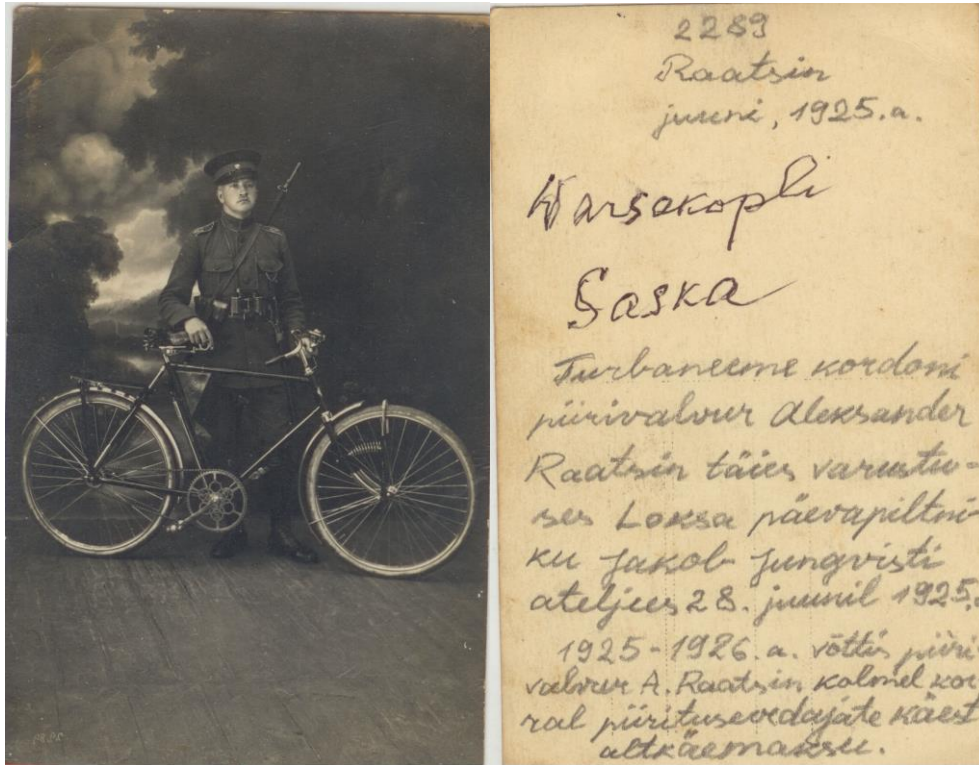 2289
Raatsin
juuni, 1925.a.
Warsakopli
Saska
Turbaneeme kordoni
piirivalvur Aleksander
Raatsin täies varustu-
ses Loksa päevapiltni-
ku Jakob Jungvisti
ateljees 28. juunil 1925.
1925-1926.a. võttis piiri-
valvur A. Raatsin kolmel kor-
ral piiritusevedajate käest
altkäemaksu.